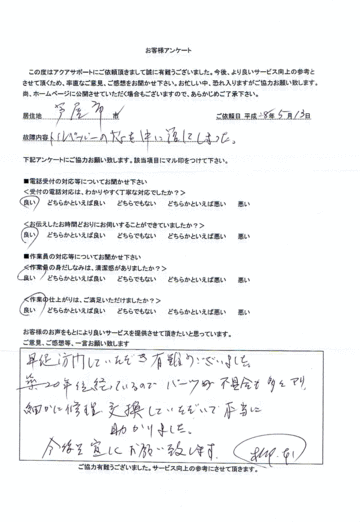 お客様アンケート
この度はアクアサポートにご依頼頂きまして誠に有難うございました。今後、より良いサービス向上の参考と
させて頂くため、率直なご意見、ご感想をお聞かせ下さい。お忙しい中、恐れ入りますがご協力お願い致します。
尚、ホームページに公開させていただく場合もございますので、あらかじめご了承下さい。
居住地 芦屋市 市 ご依頼日 平成 28年 5月 13日
故障内容 トイレットペーパーの芯を 流してしまった。
下記アンケートにご協力お願い致します。該当項目にマル印をつけて下さい。
■電話受付の対応等についてお聞かせ下さい
<受付の電話対応は、わかりやすく丁寧な対応でしたか?>
良い どちらかといえば良い どちらでもない どちらかといえば悪い 悪い
<お伝えしたお時間どおりにお伺いすることができていましたか?>
良い どちらかといえば良い どちらでもない どちらかといえば悪い 悪い
■作業員の対応等についてお聞かせ下さい
<作業員の身だしなみは、清潔感がありましたか?>
良い どちらかといえば良い どちらでもない どちらかといえば悪い 悪い
<作業の仕上がりは、ご満足いただけましたか?>
良い どちらかといえば良い どちらでもない どちらかといえば悪い 悪い
お客様のお声をもとにより良いサービスを提供させて頂きたいと思っています。
ご意見、ご感想等、一言お願い致します
早速訪問していただき有難うございました。
築20年位経っているので パーツの不具合も多々あり
細かに修理 交換していただいて本当に
助かりました。
今後も宜しくお願い致します。
ご協力有難うございました。サービス向上の参考にさせて頂きます。